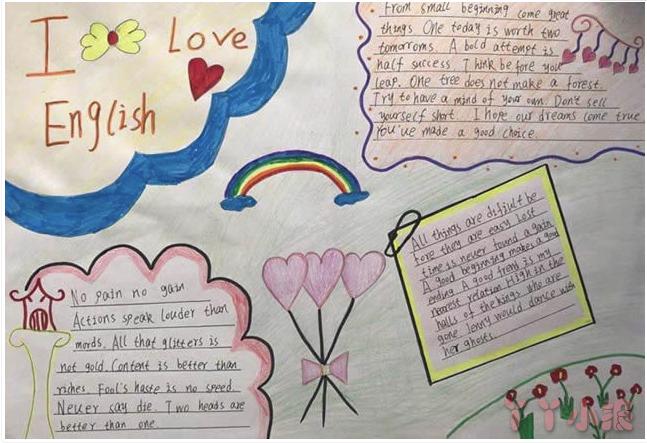 I Love
English
From small beginning come great
things One today is worth two
tomorroms. A bold attempt is
half success Think before you
leap. One tree does not make a forest.
Try to have a mind of your own. Don't sell
yourself short. I hope our dreams come true
You've made a good choice.
All things are difficult be
fore they are easy Lost
time is never found again
A good beginning makes a good
ending A good friend is my
nearest relation High in the
halls of the kings who are
gone Jenny would dance with
her ghosts.
No pain no gain
Actions speak louder than
mords. All that glitters is
not gold. Content is better than
riches. Fool's haste is no speed.
Never say die. Two heads are
better than one.
丫丫小孩